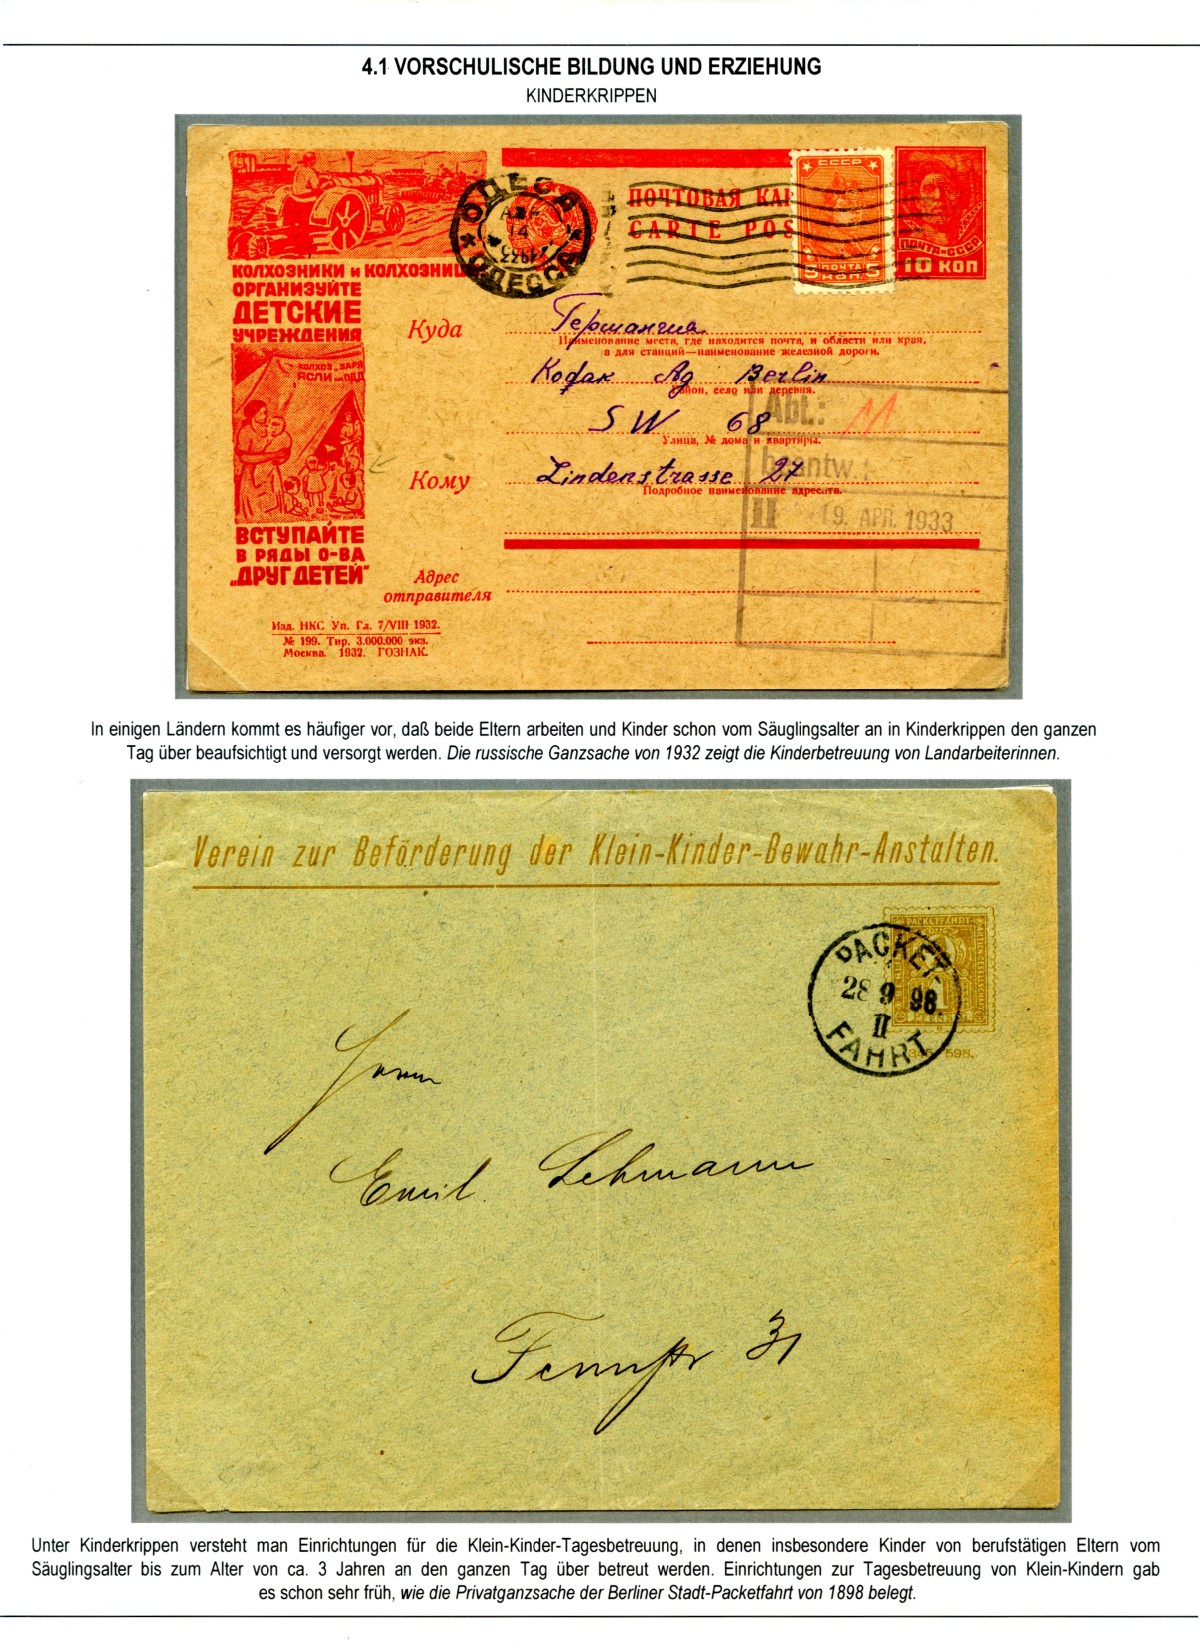 4.1 VORSCHULISCHE BILDUNG UND ERZIEHUNG
KINDERKRIPPEN
КОЛХОЗНИКИ и КОЛХОЗНИЦ
ОРГАНИЗУЙТЕ
ДЕТСКИЕ
УЧРЕЖДЕНИЯ
КОЛХОЗ „ЗАРЯ
ЯСЛИ
ВСТУПАЙТЕ
В РЯДЫ О-ВА
„ДРУГ ДЕТЕЙ"
Изд. НКС Уп. Гл. 7/VIII 1932.
№ 199. Тир. 3.000.000 экз.
Москва. 1932. ГОЗНАК.
ОДЕСА
14
1933
ОДЕССА
ПОЧТОВАЯ КАР
CARTE POS
СССР
5 ПОЧТА 5
КОП.
ПОЧТА-СССР
10 КОП
Куда
Германия
Наименование места, где находится почта, и области или края,
а для станций—наименование железной дороги.
Kodak Ag Berlin
Район, село или деревня.
SW 68
Улица, № дома и квартиры.
Кому
Lindenstrasse 27
Подробное наименование адресата.
Abt.: 11
beantw.:
II 19. APR. 1933
Адрес
отправителя
In einigen Ländern kommt es häufiger vor, daß beide Eltern arbeiten und Kinder schon vom Säuglingsalter an in Kinderkrippen den ganzen
Tag über beaufsichtigt und versorgt werden. Die russische Ganzsache von 1932 zeigt die Kinderbetreuung von Landarbeiterinnen.
Verein zur Beförderung der Klein-Kinder-Bewahr-Anstalten.
PACKETFAHRT-
PACKET-
28 9 98.
II
FAHRT
598.
Herrn
Emil Lehmann
Fennstr 31
Unter Kinderkrippen versteht man Einrichtungen für die Klein-Kinder-Tagesbetreuung, in denen insbesondere Kinder von berufstätigen Eltern vom
Säuglingsalter bis zum Alter von ca. 3 Jahren an den ganzen Tag über betreut werden. Einrichtungen zur Tagesbetreuung von Klein-Kindern gab
es schon sehr früh, wie die Privatganzsache der Berliner Stadt-Packetfahrt von 1898 belegt.